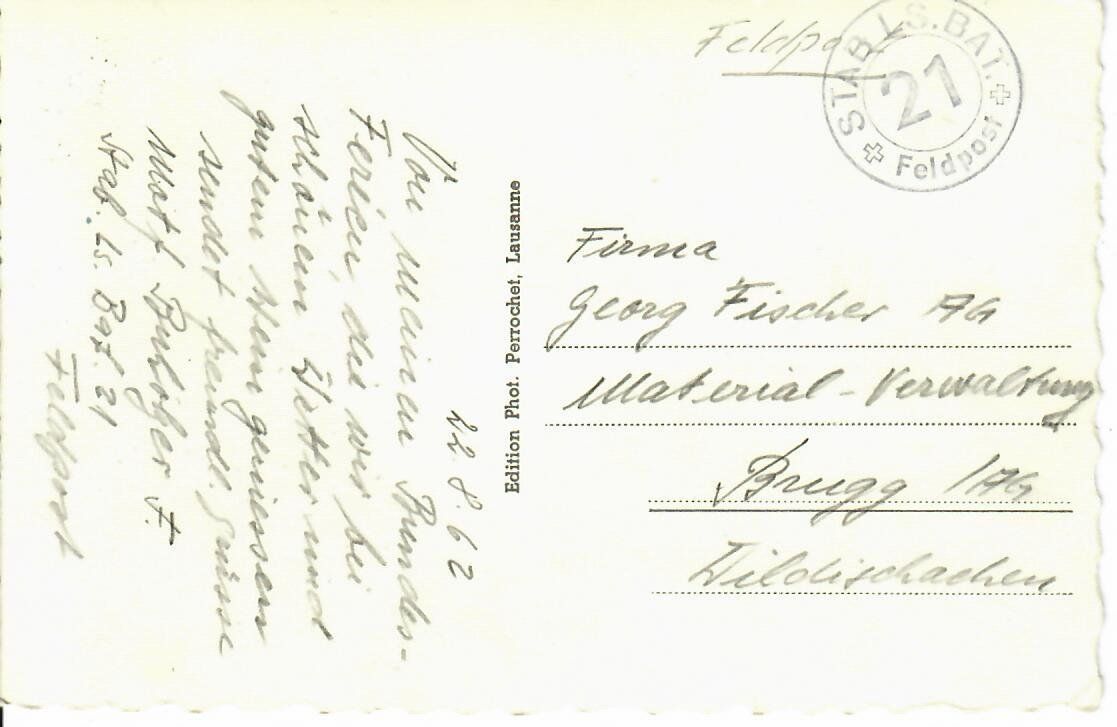 Feldpost
STAB LS. BAT.
21
Feldpost
22.8.62
Von meinen Bundes-
Ferien, die wir bei
schönem Wetter und
gutem geniessen
sendet freundl. Grüsse
F.
Stab. Ls. Bat. 21
Feldpost
Edition Phot. Perrochet, Lausanne
Firma
Georg Fischer AG
Material-Verwaltung
Brugg /AG
Wildischachen